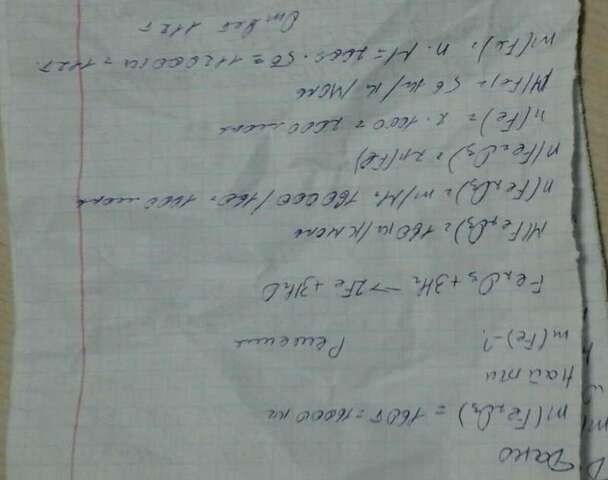 Дано
m(Fe₂O₃) = 160т = 160000 кг
Найти
m(Fe) - ?
Решение
Fe₂O₃ + 3H₂ → 2Fe + 3H₂O
M(Fe₂O₃) = 160 кг/кмоль
n(Fe₂O₃) = m/M = 160000/160 = 1000 моль
n(Fe₂O₃) = 2n(Fe)
n(Fe) = 2 · 1000 = 2000 моль
M(Fe) = 56 кг/кмоль
m(Fe) = n · M = 2000 · 56 = 112000 кг = 112т.
Ответ 112т